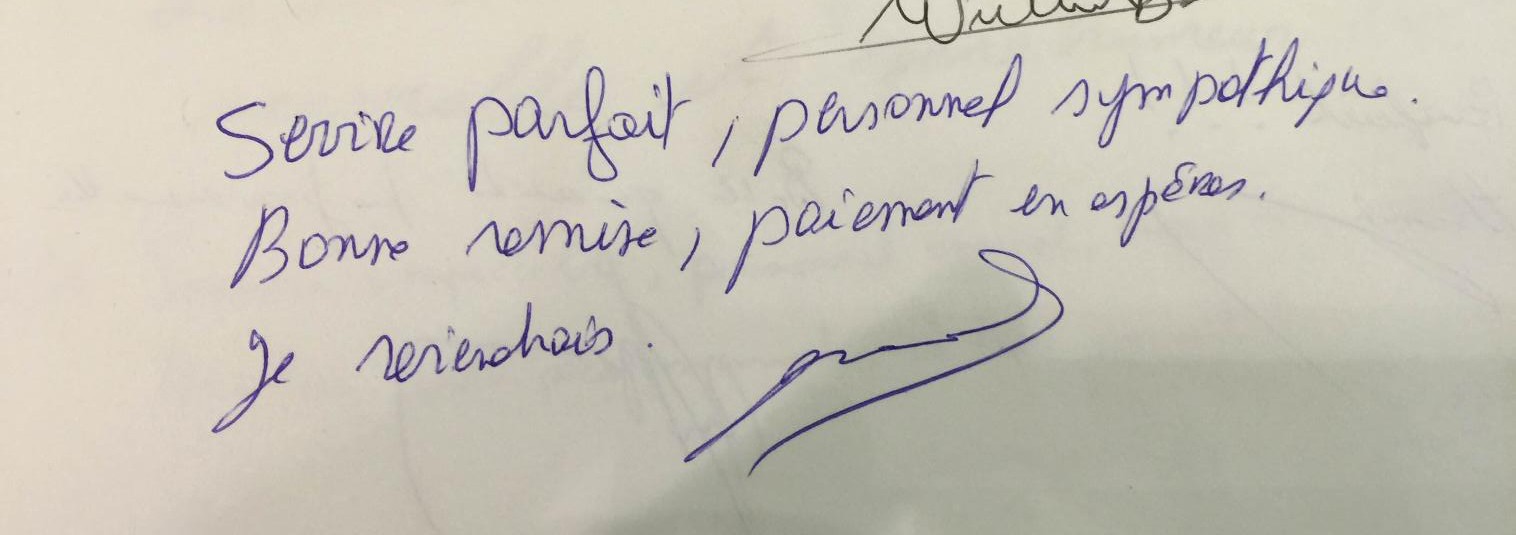 Service parfait, personnel sympathique.
Bonne remise, paiement en espèces.
Je reviendrais.